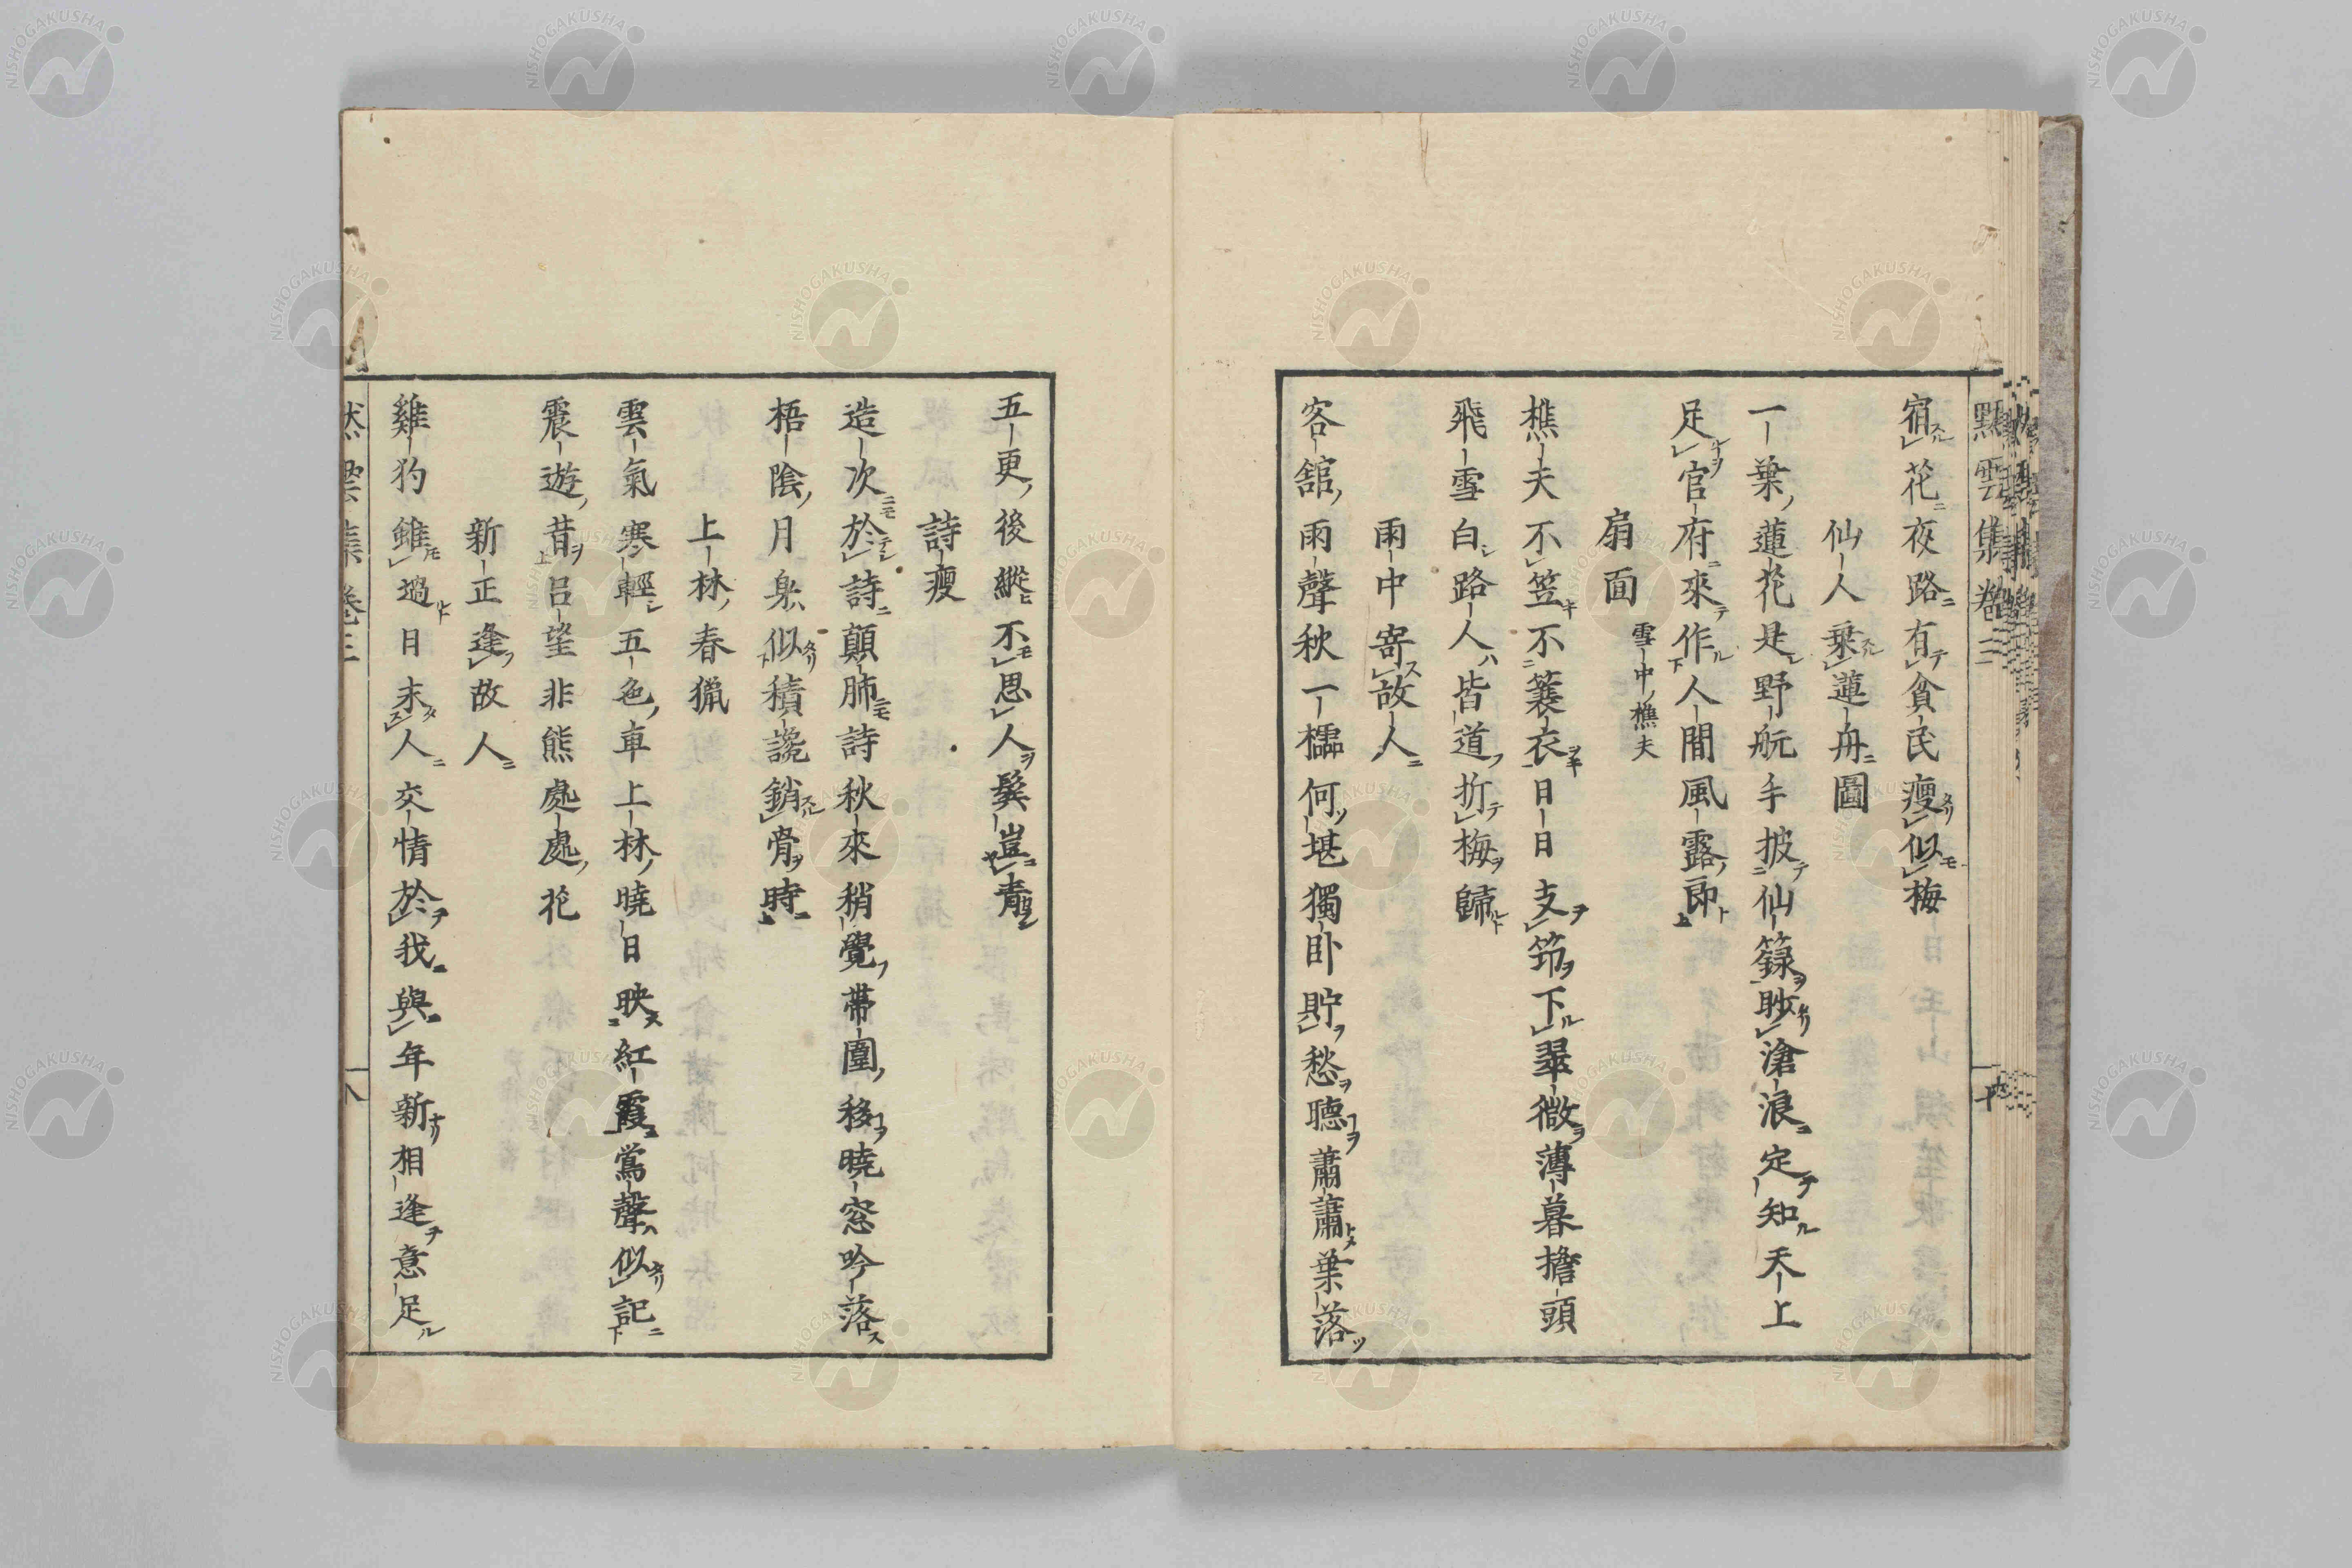 黙雲集卷三
宿花夜路有貧民瘦似梅
仙人乗蓮舟圖
一葉蓮花是野航手披仙籙眇滄浪定知天上
足官府來作人間風露郎
扇面 雪中樵夫
樵夫不笠不簑衣日日支筇下翠微薄暮擔頭
飛雪白路人皆道折梅歸
雨中寄故人
客舘雨聲秋一櫺何堪獨卧貯愁聴蕭蕭葉落
五更後縱不思人鬂豈青
詩瘦
造次於詩顛沛詩秋來稍覺帯圍移曉窓吟落
梧陰月臬似積讒銷骨時
上林春猟
雲氣寒輕五色車上林曉日映紅霞鴬聲似記
震遊昔呂望非熊處處花
新正逢故人
雞犳雖過日未人交情於我與年新相逢意足